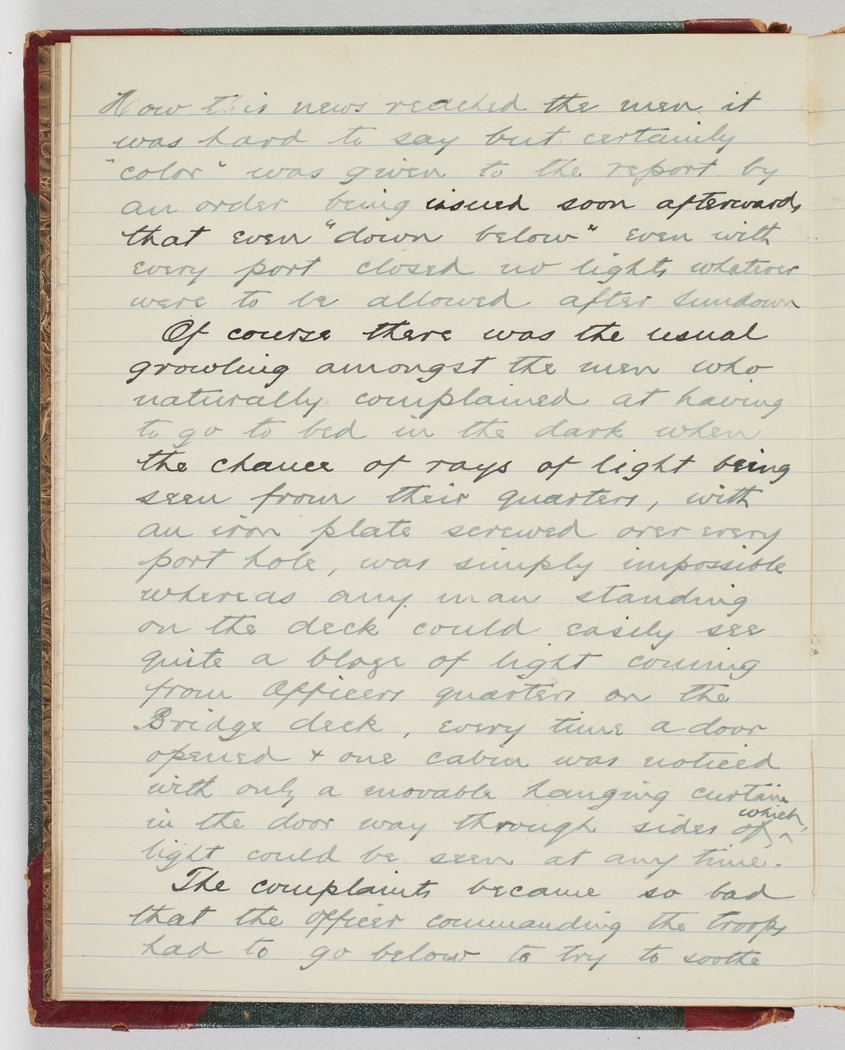 How this news reached the men it
was hard to say but certainly
"color" was given to the report by
an order being issued soon afterwards
that even "down below" even with
every port closed no lights whatever
were to be allowed after sundown
Of course there was the usual
growling amongst the men who
naturally complained at having
to go to bed in the dark when
the chance of rays of light being
seen from their quarters, with
an iron plate screwed over every
port hole, was simply impossible
whereas any man standing
on the deck could easily see
quite a blaze of light coming
from Officers quarters on the
Bridge deck, every time a door
opened & one cabin was noticed
with only a movable hanging curtain
in the door way through sides of which
light could be seen at any time.
The complaints became so bad
that the Officer commanding the troops
had to go below to try to soothe